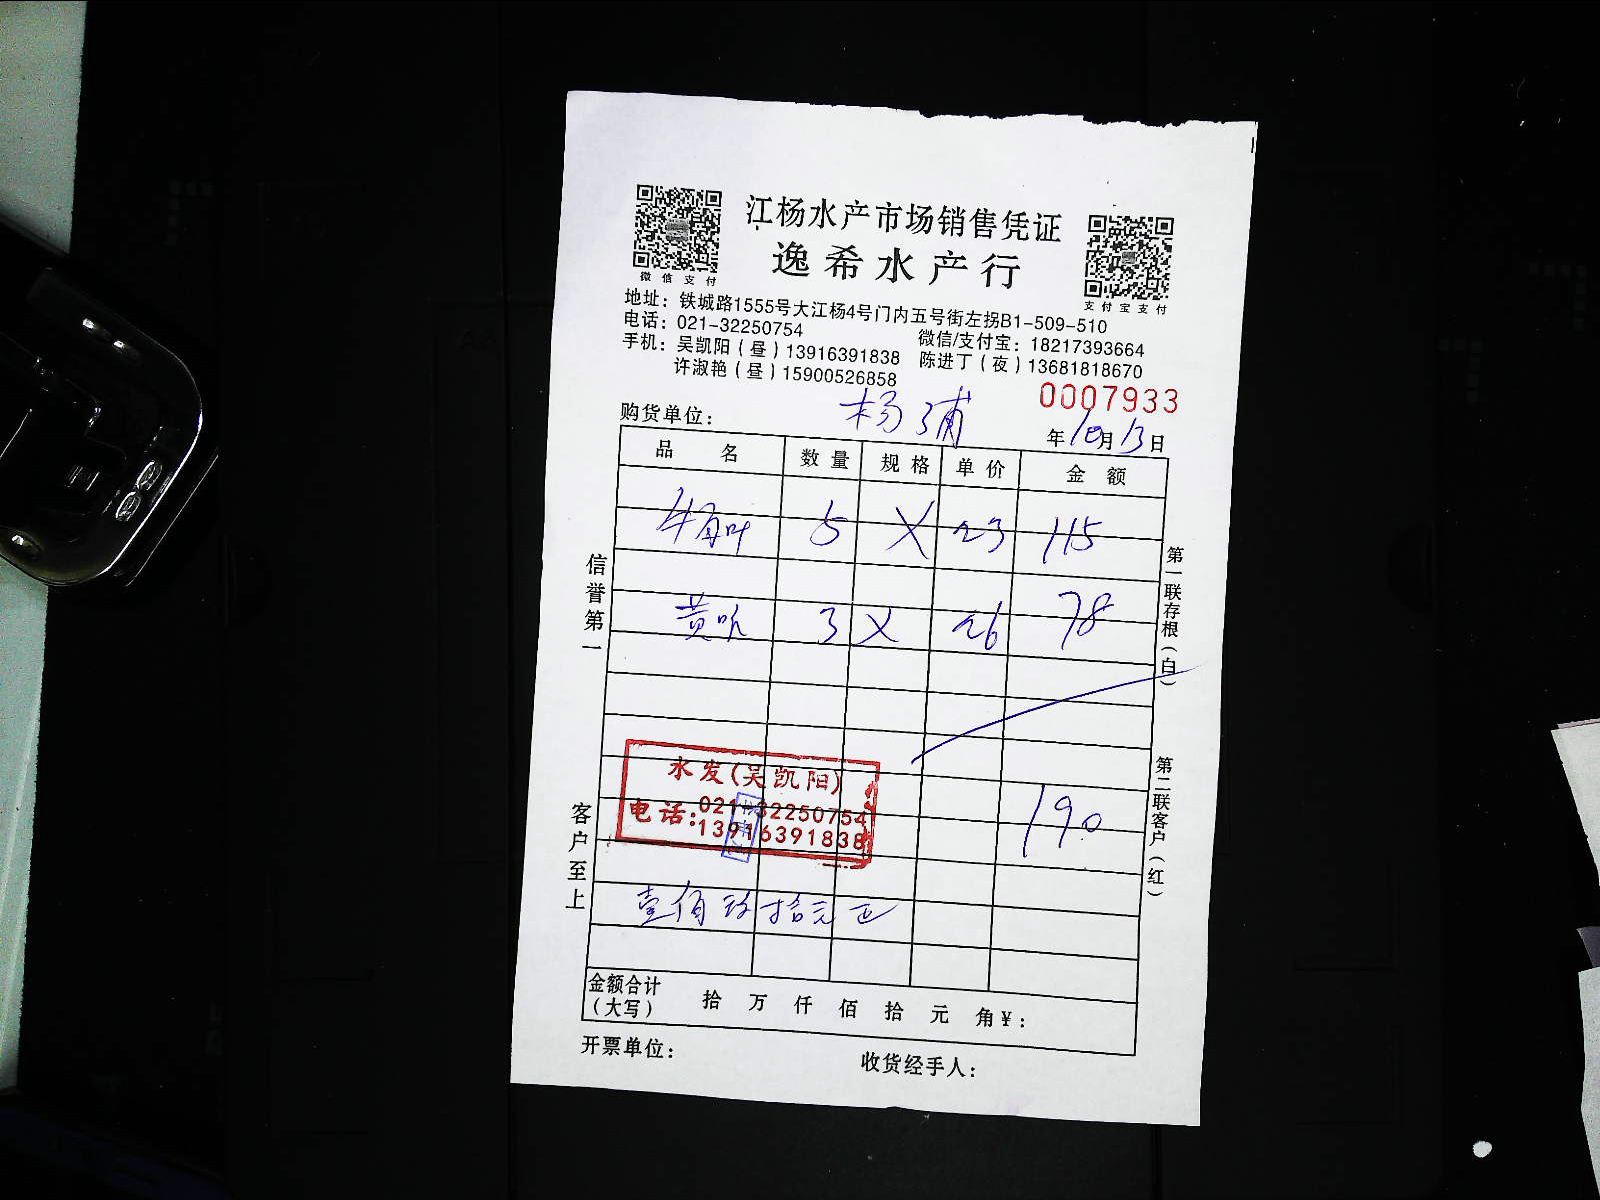 江杨水产市场销售凭证
逸希水产行
微信支付
支付宝支付
地址：铁城路1555号大江杨4号门内五号街左拐B1-509-510
电话：021-32250754 微信/支付宝：18217393664
手机：吴凯阳（昼）13916391838 陈进丁（夜）13681818670
许淑艳（昼）15900526858
0007933
购货单位： 杨浦
年10月13日
品名 数量 规格 单价 金额
5 X 23 115
黄 3 X 26 78
190
水发(吴凯阳)
电话:021-32250754
13916391838
壹佰玖拾元正
金额合计（大写） 拾 万 仟 佰 拾 元 角¥：
开票单位： 收货经手人：
信誉第一
客户至上
第一联存根（白）
第二联客户（红）